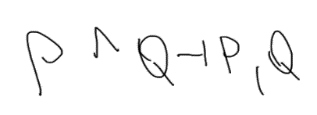 P ∧ Q ⊣ P, Q